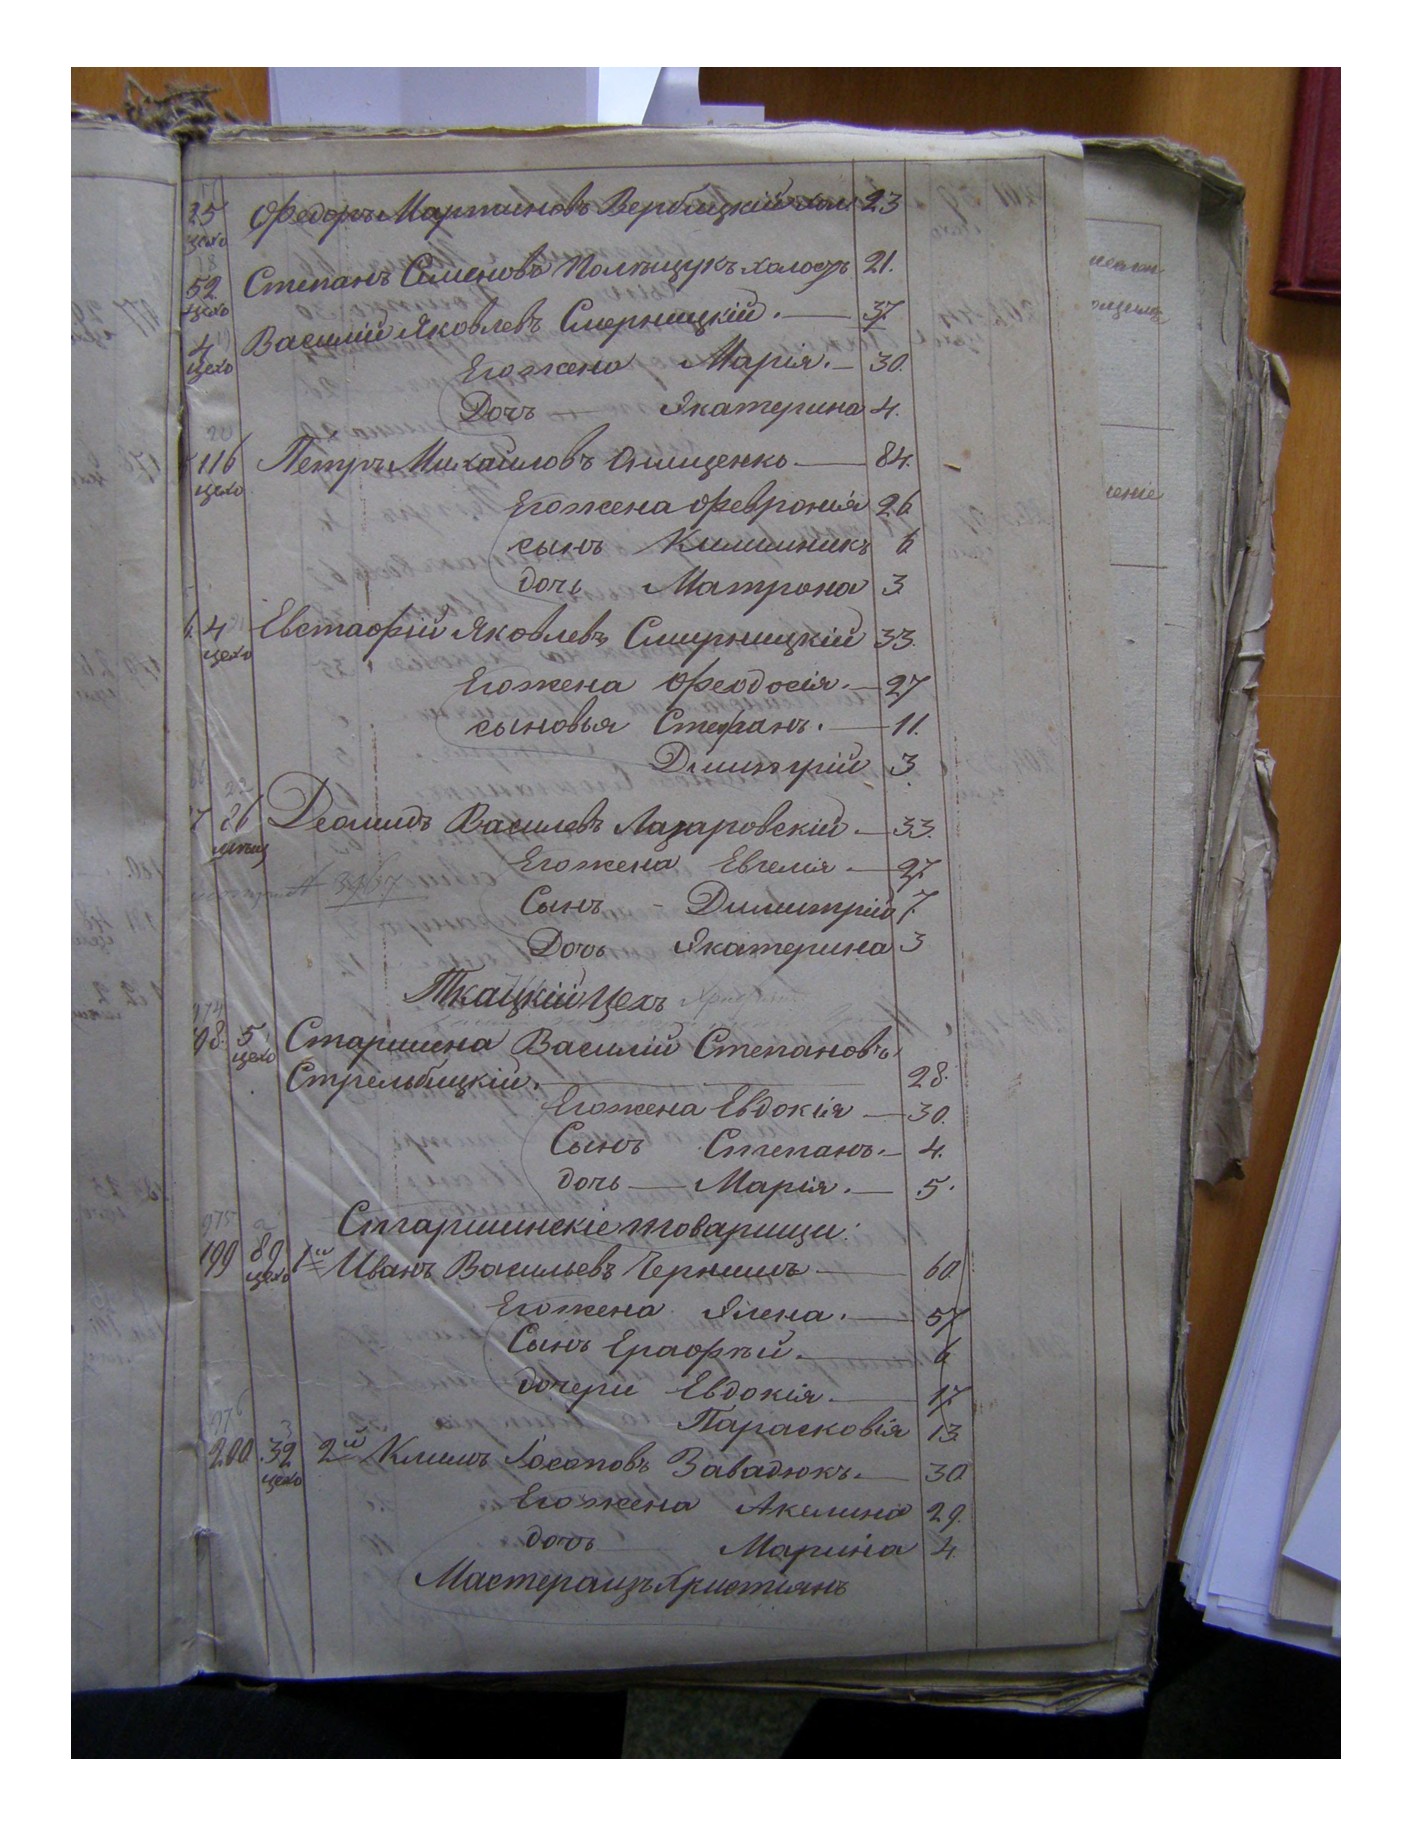 25 Ѳедоръ Мартиновъ Вербицкій хол 23
цехо
52 Степанъ Семеновъ Полѣщукъ холостъ 21.
цехо
4 Василій Яковлевъ Смерницкій. — 37
цехо
Его жена Марія. — 30.
Дочь Якатерина 4.
116 Петръ Михайловъ Онищенко — 84.
цехо
Его жена Ѳевронія 26
сынъ 6
дочь Матрона 3
4 Евстафій Яковлевъ Смирницкій 33.
цехо
Его жена Ѳеодосія. — 27
сыновья Стефанъ. — 11.
Димитрій 3
7 26 Деомидъ Василевъ Лазаровскій — 33.
Его жена Евгелія — 27.
Сынъ - Димитрій 7.
Дочь Якатерина 3
Ткацкій Цехъ
974
198. 5 Старшина Василій Степановъ
цехо
Стрельбицкій. — 28.
Его жена Евдокія — 30.
Сынъ Степанъ. — 4.
дочь — Марія. — 5.
Старшинскіе товарищи:
975
199 89 1й Иванъ Васильевъ Чернышъ — 60
цехо
Его жена Ялена. — 57
Сынъ Ерафѣй. — 6
дочери Евдокія. — 17
Парасковія 13
976
200. 32 2й Климъ Іосоповъ Завадюкъ. — 30
цехо
Его жена Акилина 29.
дочь Марина 4.
Мастера изъ Християнъ